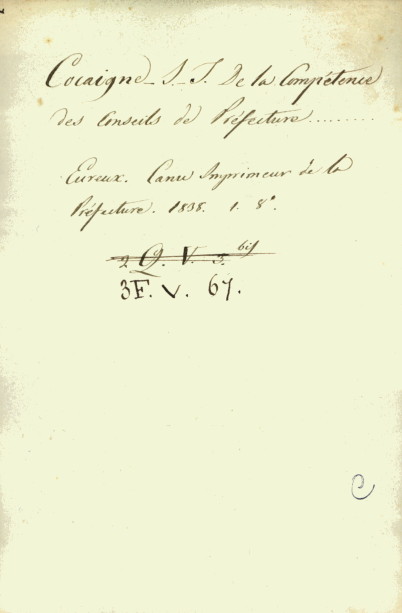 Cocaigne_ J_ J. De la Compétence
des Conseils de Préfecture..........
Evreux. Canu Imprimeur de la
Préfecture. 1838. 1. 8°.
2 Q. V. 3. bis
3F. V. 67.
C